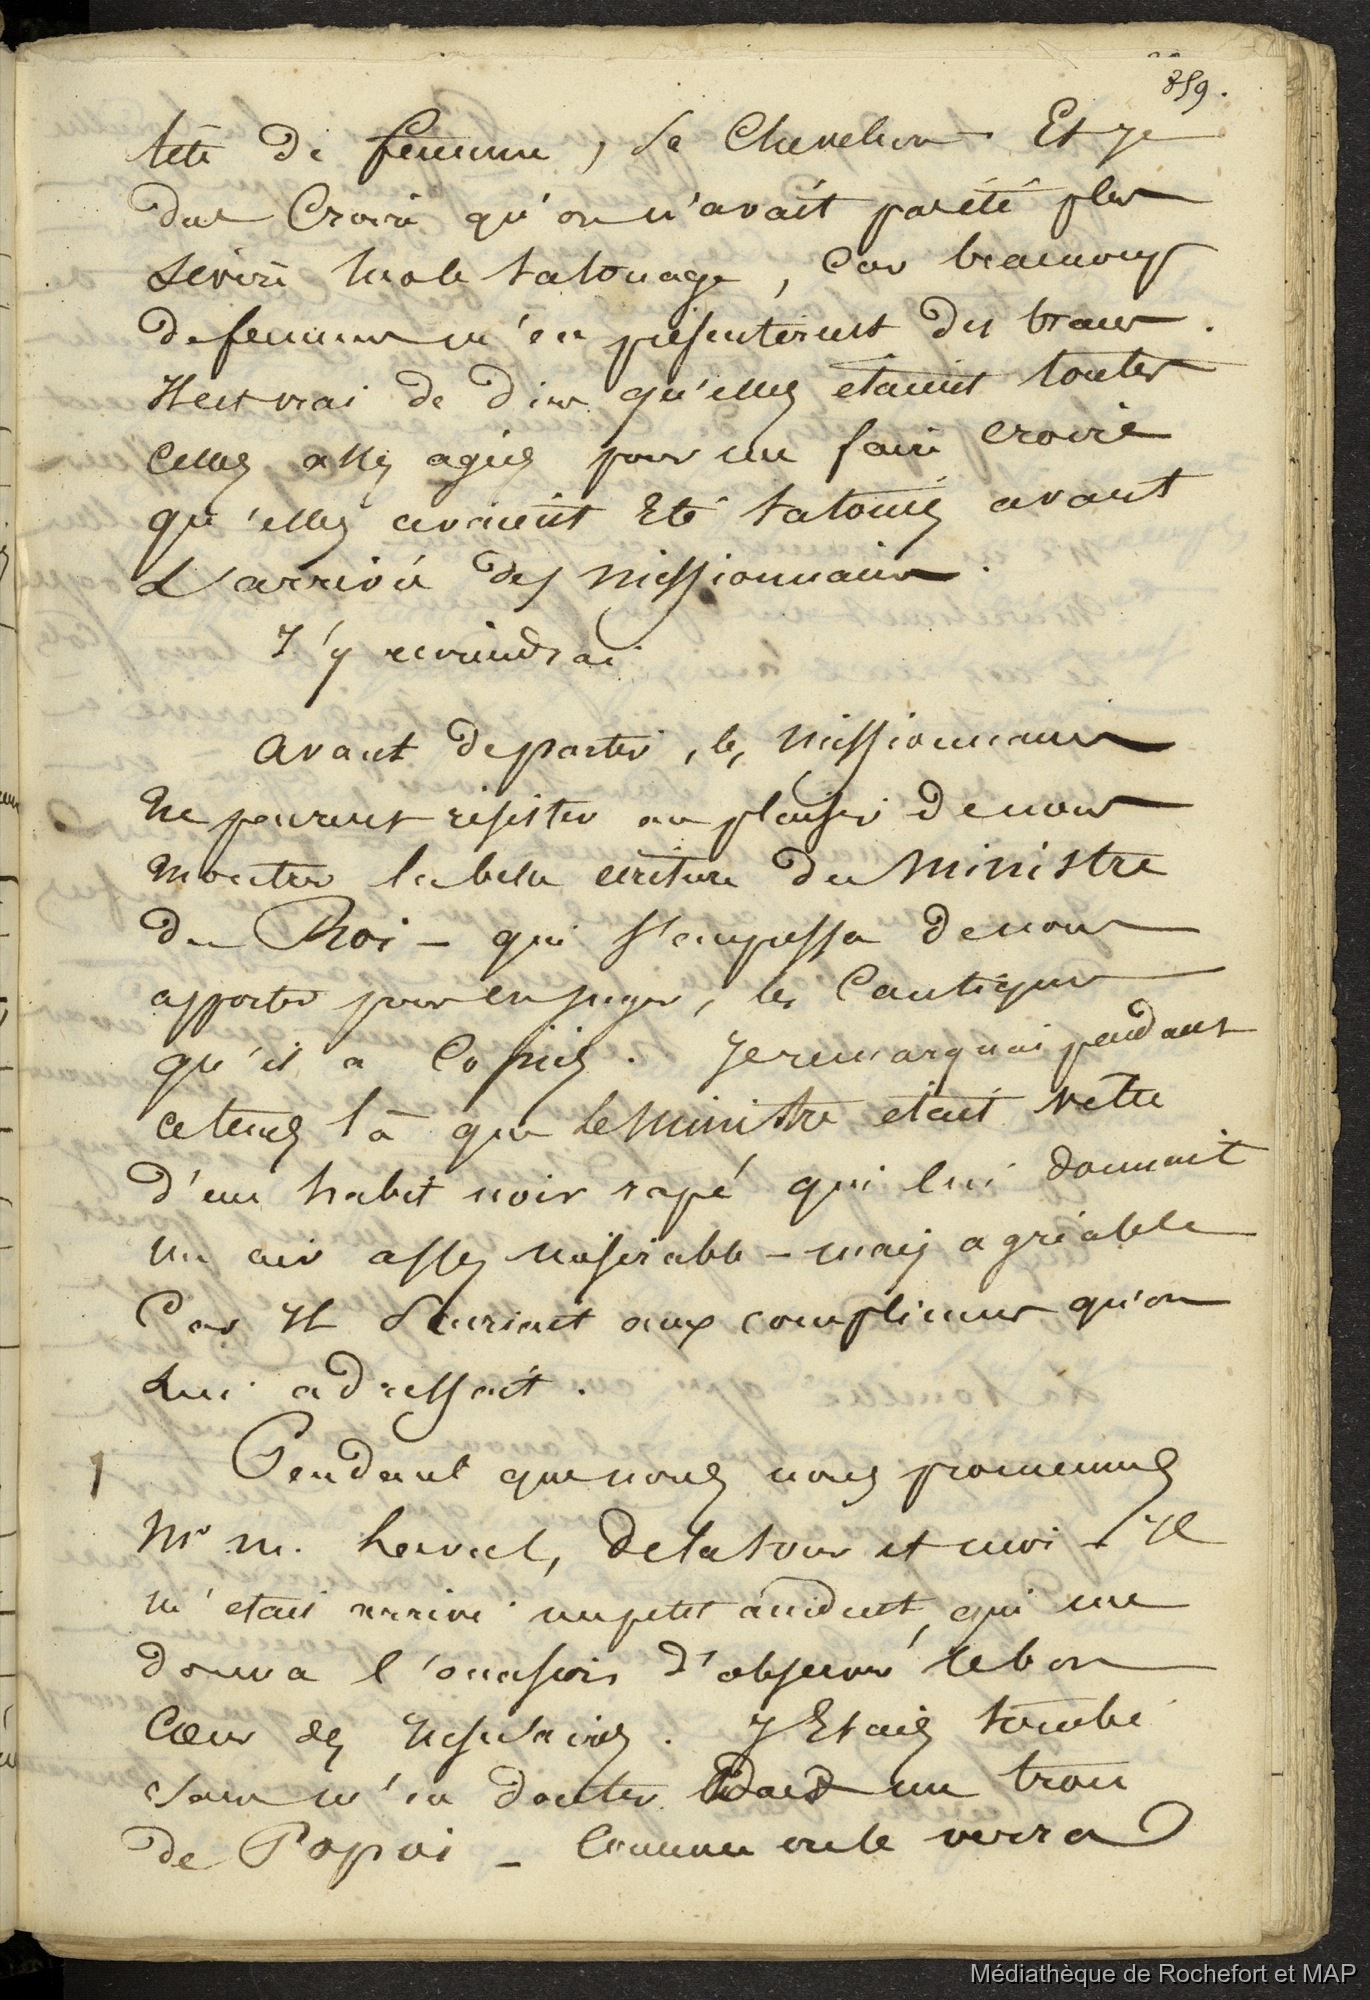 859.
tête de femme, sa Chevelure. Et je
dus Croire qu'on n'avait pas été plus
sévère le tatouage, Car beaucoup
de femmes m'en présenterent des traces.
Il est vrai de dire qu'elles etaient toutes
Celles assez agées pour me faire croire
qu'elles avaient Eté tatouées avant
L'arrivée des missionnaires.
J'y reviendrai
avant de partir, les missionnaires
Ne peurent résister au plaisir de nous
montrer la belle ecriture du Ministre
du Roi – qui s'empressa de nous
apporter pour en juger, les Cantiques
qu'il a Copiés. Je remarquai pendant
ce temps là que le Ministre etait vêtu
d'un habit noir rapé qui lui donnait
un air assez misérable – mais agréable
Car Il Souriait aux complimens qu'on
Lui adressait.
1 Pendant que nous nous promenions
Mr m. , de latour et moi – Il
m'etait arrivé un petit accident, qui me
donna l'occasion d'observer le bon
Cœur des Insulaires. J'Etais tombé
sans m'en douter dans un trou
de Popoi – Comme on le verra
Médiathèque de Rochefort et MAP